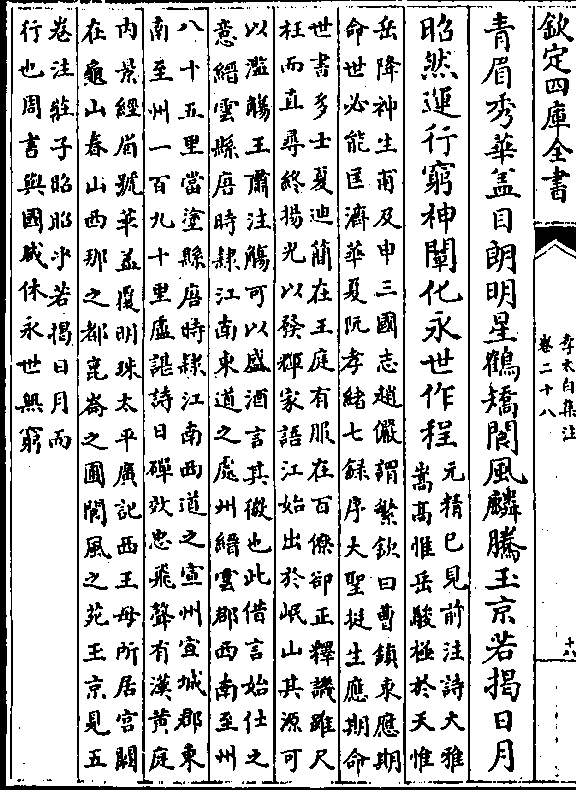 欽定四庫全書
李太白集注
卷二十八
青眉秀華蓋目朗明星鶴矯閬風麟騰玉京若揭日月
昭然運行窮神闡化永世作程
元精已見前注詩大雅
嵩高惟岳駿極於天惟
岳降神生甫及申三國志趙儼謂繁欽曰曹鎮東應期
命世必能匡濟華夏阮孝緒七録序大聖挺生應期命
世書多士夏迪簡在王庭有服在百僚卻正釋譏雖尺
枉而直尋終揚光以發輝家語江始出於岷山其源可
以濫觴王肅注觴可以盛酒言其微也此借言始仕之
意縉雲縣唐時隷江南東道之處州縉雲郡西南至州
八十五里當塗縣唐時隷江南西道之宣州宣城郡東
南至州一百九十里盧諶詩日磾效忠飛聲有漢黄庭
内景經眉號華蓋覆明珠太平廣記西王母所居宫闕
在龜山春山西那之都崑崙之圃閬風之苑玉京見五
卷注莊子昭昭乎若揭日月而
行也周書與國咸休永世無窮